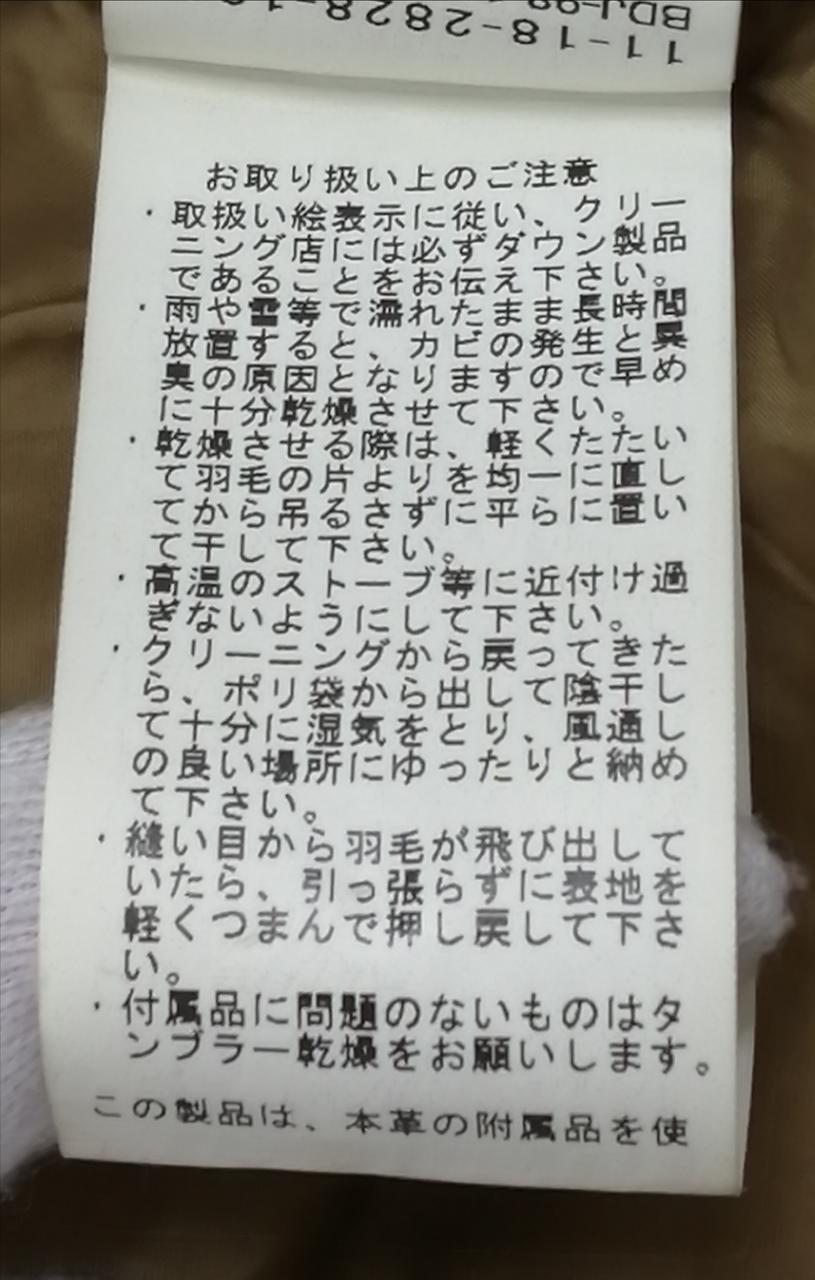 BDJ-98
11-18-2828-1
お取り扱い上のご注意
・取扱い絵表示に従い、クリー
ニング店には必ずダウン製品
であることをお伝え下さい。
・雨や雪等で濡れたまま長時間
放置すると、カビの発生と異
臭の原因となりますので早め
に十分乾燥させて下さい。
・乾燥させる際は、軽くたたい
て羽毛の片よりを均一に直し
てから吊るさずに平らに置い
て干して下さい。
・高温のストーブ等に近付け過
ぎないようにして下さい。
・クリーニングから戻ってきた
ら、ポリ袋から出して陰干し
て十分に湿気をとり、風通し
の良い場所にゆったりと納め
て下さい。
・縫い目から羽毛が飛び出して
いたら、引っ張らずに表地を
軽くつまんで押し戻して下さ
い。
・付属品に問題のないものはタ
ンブラー乾燥をお願いします。
この製品は、本革の附属品を使